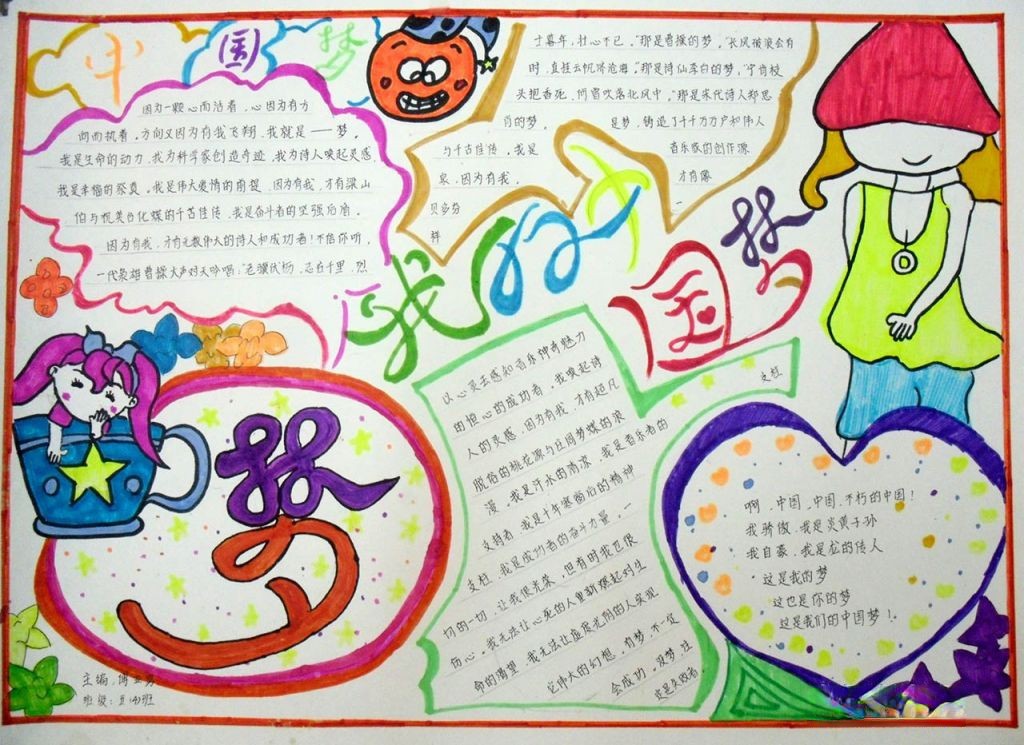 中国梦
因为一颗心而活着，心因为有力
向而执着，方向又因为有我飞翔，我就是——梦。
我是生命的动力，我为科学家创造奇迹，我为诗人唤起灵感，
我是幸福的
我是伟大爱情的
因为有我，才有梁山
伯与祝英台化蝶的千古佳传，我是奋斗者的坚强后盾。
因为有我，才有无数伟大的诗人和成功者！不信你听，
一代枭雄曹操大声对天吟唱：“老骥伏枥，志在千里，烈
士暮年，壮心不已。”那是曹操的梦。“长风破浪会有
时，直挂云帆济沧海。”那是诗仙李白的梦，“宁肯枝
头抱香死，何曾吹落北风中。”那是宋代诗人郑思
肖的梦。
是梦，铸造了千千万万户和伟人
与千古佳传，我是
音乐家的创作源
泉，因为有我，
才有像
贝多芬
一
样
我的中国梦
以心灵去感知音乐神奇魅力
由恒心的成功者，我唤起诗
人的灵感，因为有我，才有超凡
脱俗的桃花源与庄周梦蝶的浪
漫，我是汗水的清凉，我是音乐者的
支持者，我是十年寒窗后的精神
支柱，我是成功者的奋斗力量，一
切的一切，让我很光荣，但有时我也很
伤心，我无法让心死的人重新燃起对生
命的渴望，我无法让虚度光阴的人实现
它伟大的幻想，有梦，不一定
会成功，没梦，注
定是失败者。
支柱
梦
主编：傅
班级：五(4)班
啊，中国，中国，不朽的中国！
我骄傲，我是炎黄子孙
我自豪，我是龙的传人
这是我的梦
这也是你的梦
这是我们的中国梦！